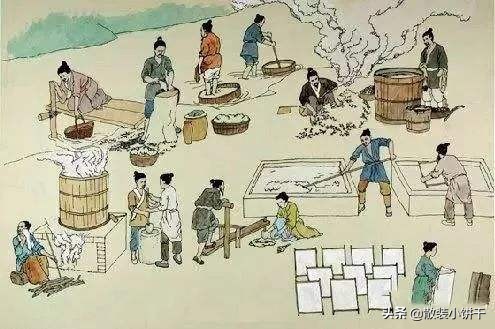 头条 @散装小饼干